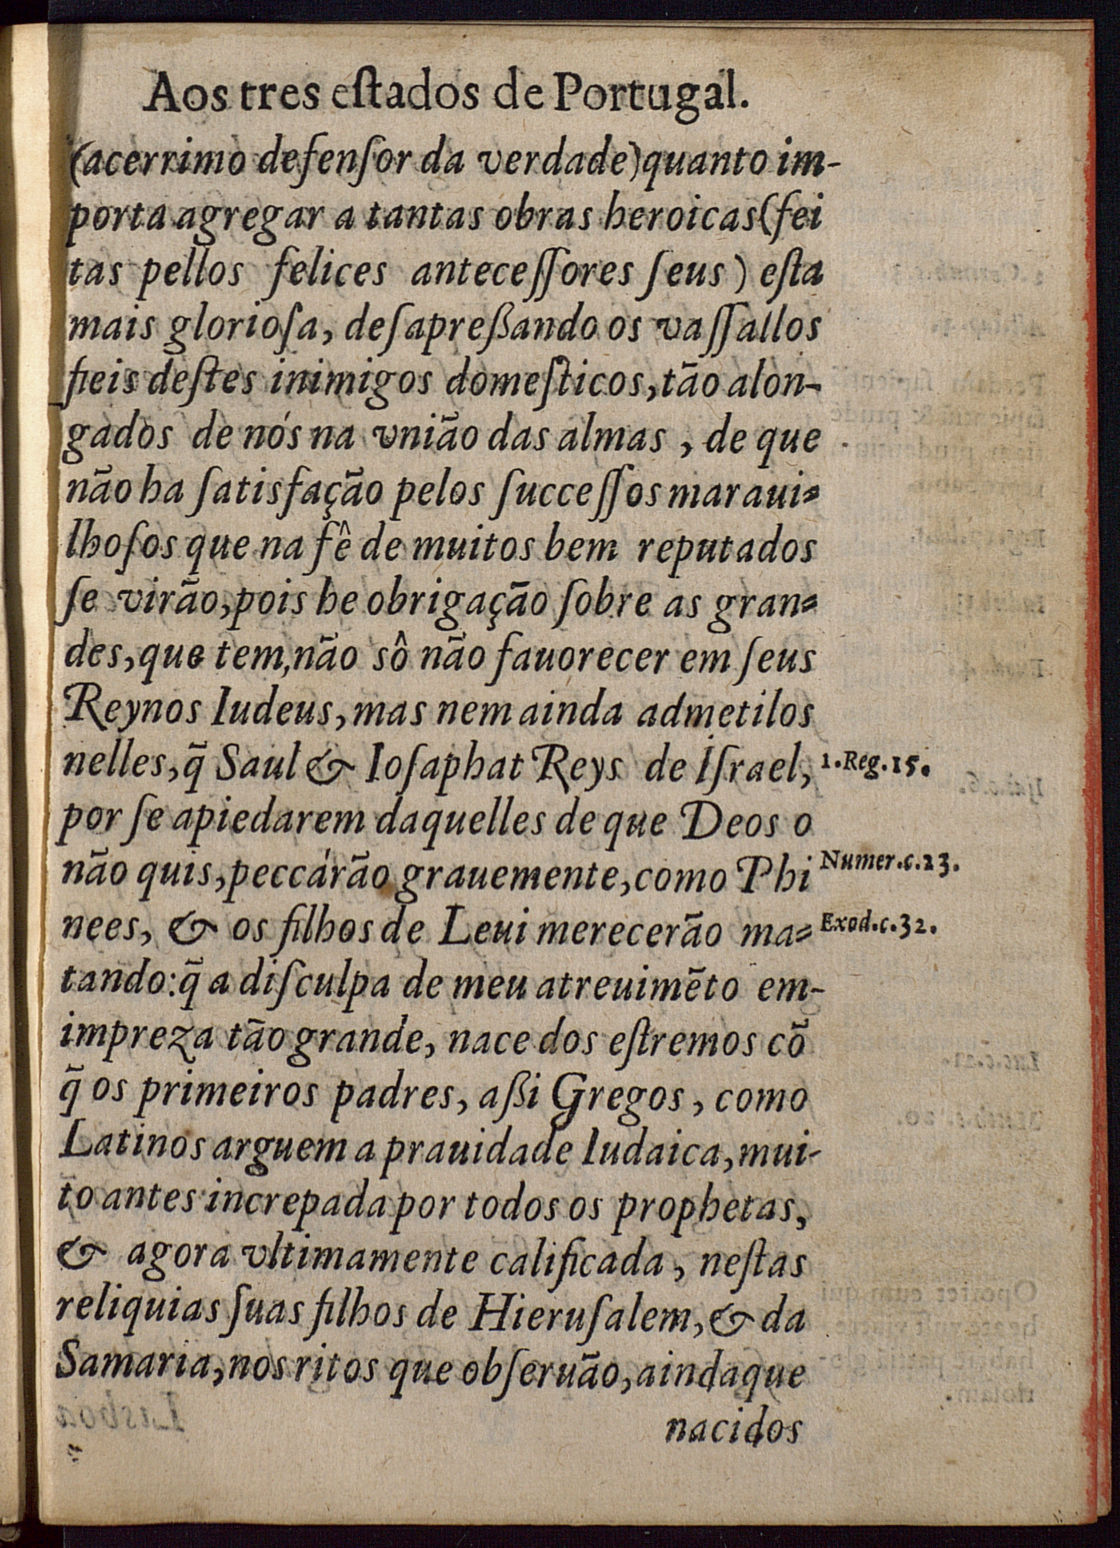 Aos tres eſtados de Portugal.
(acerrimo defenſor da verdade) quanto im-
porta agregar a tantas obras heroicas (fei
tas pellos felices anteceſſores ſeus) eſta
mais glorioſa, deſapreßando os vaſſallos
fieis deſtes inimigos domeſticos, tão alon-
gados de nós na vnião das almas, de que
não ha ſatisfação pelos ſucceſſos maraui-
lhoſos que na fê de muitos bem reputados
ſe virão, pois he obrigação ſobre as gran-
des, que tem, não sô não fauorecer em ſeus
Reynos Iudeus, mas nem ainda admetilos
nelles, q̃ Saul & Ioſaphat Reys de Iſrael, 1.Reg.15.
por ſe apiedarem daquelles de que Deos o
não quis, peccárão grauemente, como Phi Numer.c.23.
nees, & os filhos de Leui merecerão ma- Exod.c.32.
tando: q̃ a diſculpa de meu atreuimẽto em-
impreza tão grande, nace dos eſtremos cõ
q̃ os primeiros padres, aßi Gregos, como
Latinos arguem a prauidade Iudaica, mui-
to antes increpada por todos os prophetas,
& agora vltimamente calificada, neſtas
reliquias ſuas filhos de Hieruſalem, & da
Samaria, nos ritos que obſeruão, ainda que
nacidos